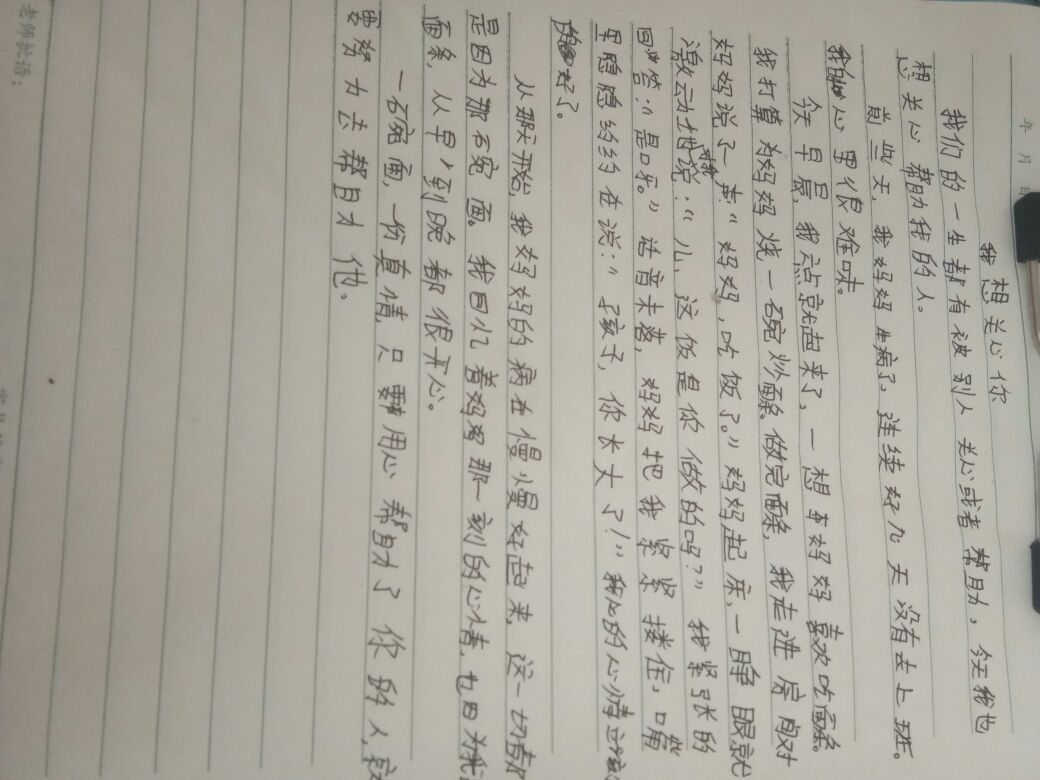 年 月 日
我想关心你
我们的一生都有被别人关心或者帮助，今天我也
想关心帮助我的人。
前些天，我妈妈生病了，连续好几天没有去上班。
我的心里很难味。
今天早晨，我六点就起来了，一想车妈妈喜欢吃面条。
我打算为妈妈烧一碗炒面条。做完面条，我走进房间对
妈妈说了一声“妈妈，吃饭了。”妈妈起床，一睁眼就
激动地对我说：“儿，这饭是你做的吗？”我紧张的
回答：“是呀。”话音未落，妈妈把我紧紧搂住，嘴
里隐隐约约在说：“孩子，你长大了！”我的心情
好了。
从那天开始，我妈妈的病在慢慢好起来，这一切都
是因为那碗面。我回忆着妈妈那一刻的心情，也因为我
面条，从早到晚都很开心。
一碗面，一份真情，只要用心帮助了你的人，就
要努力去帮助他。
老师批语：